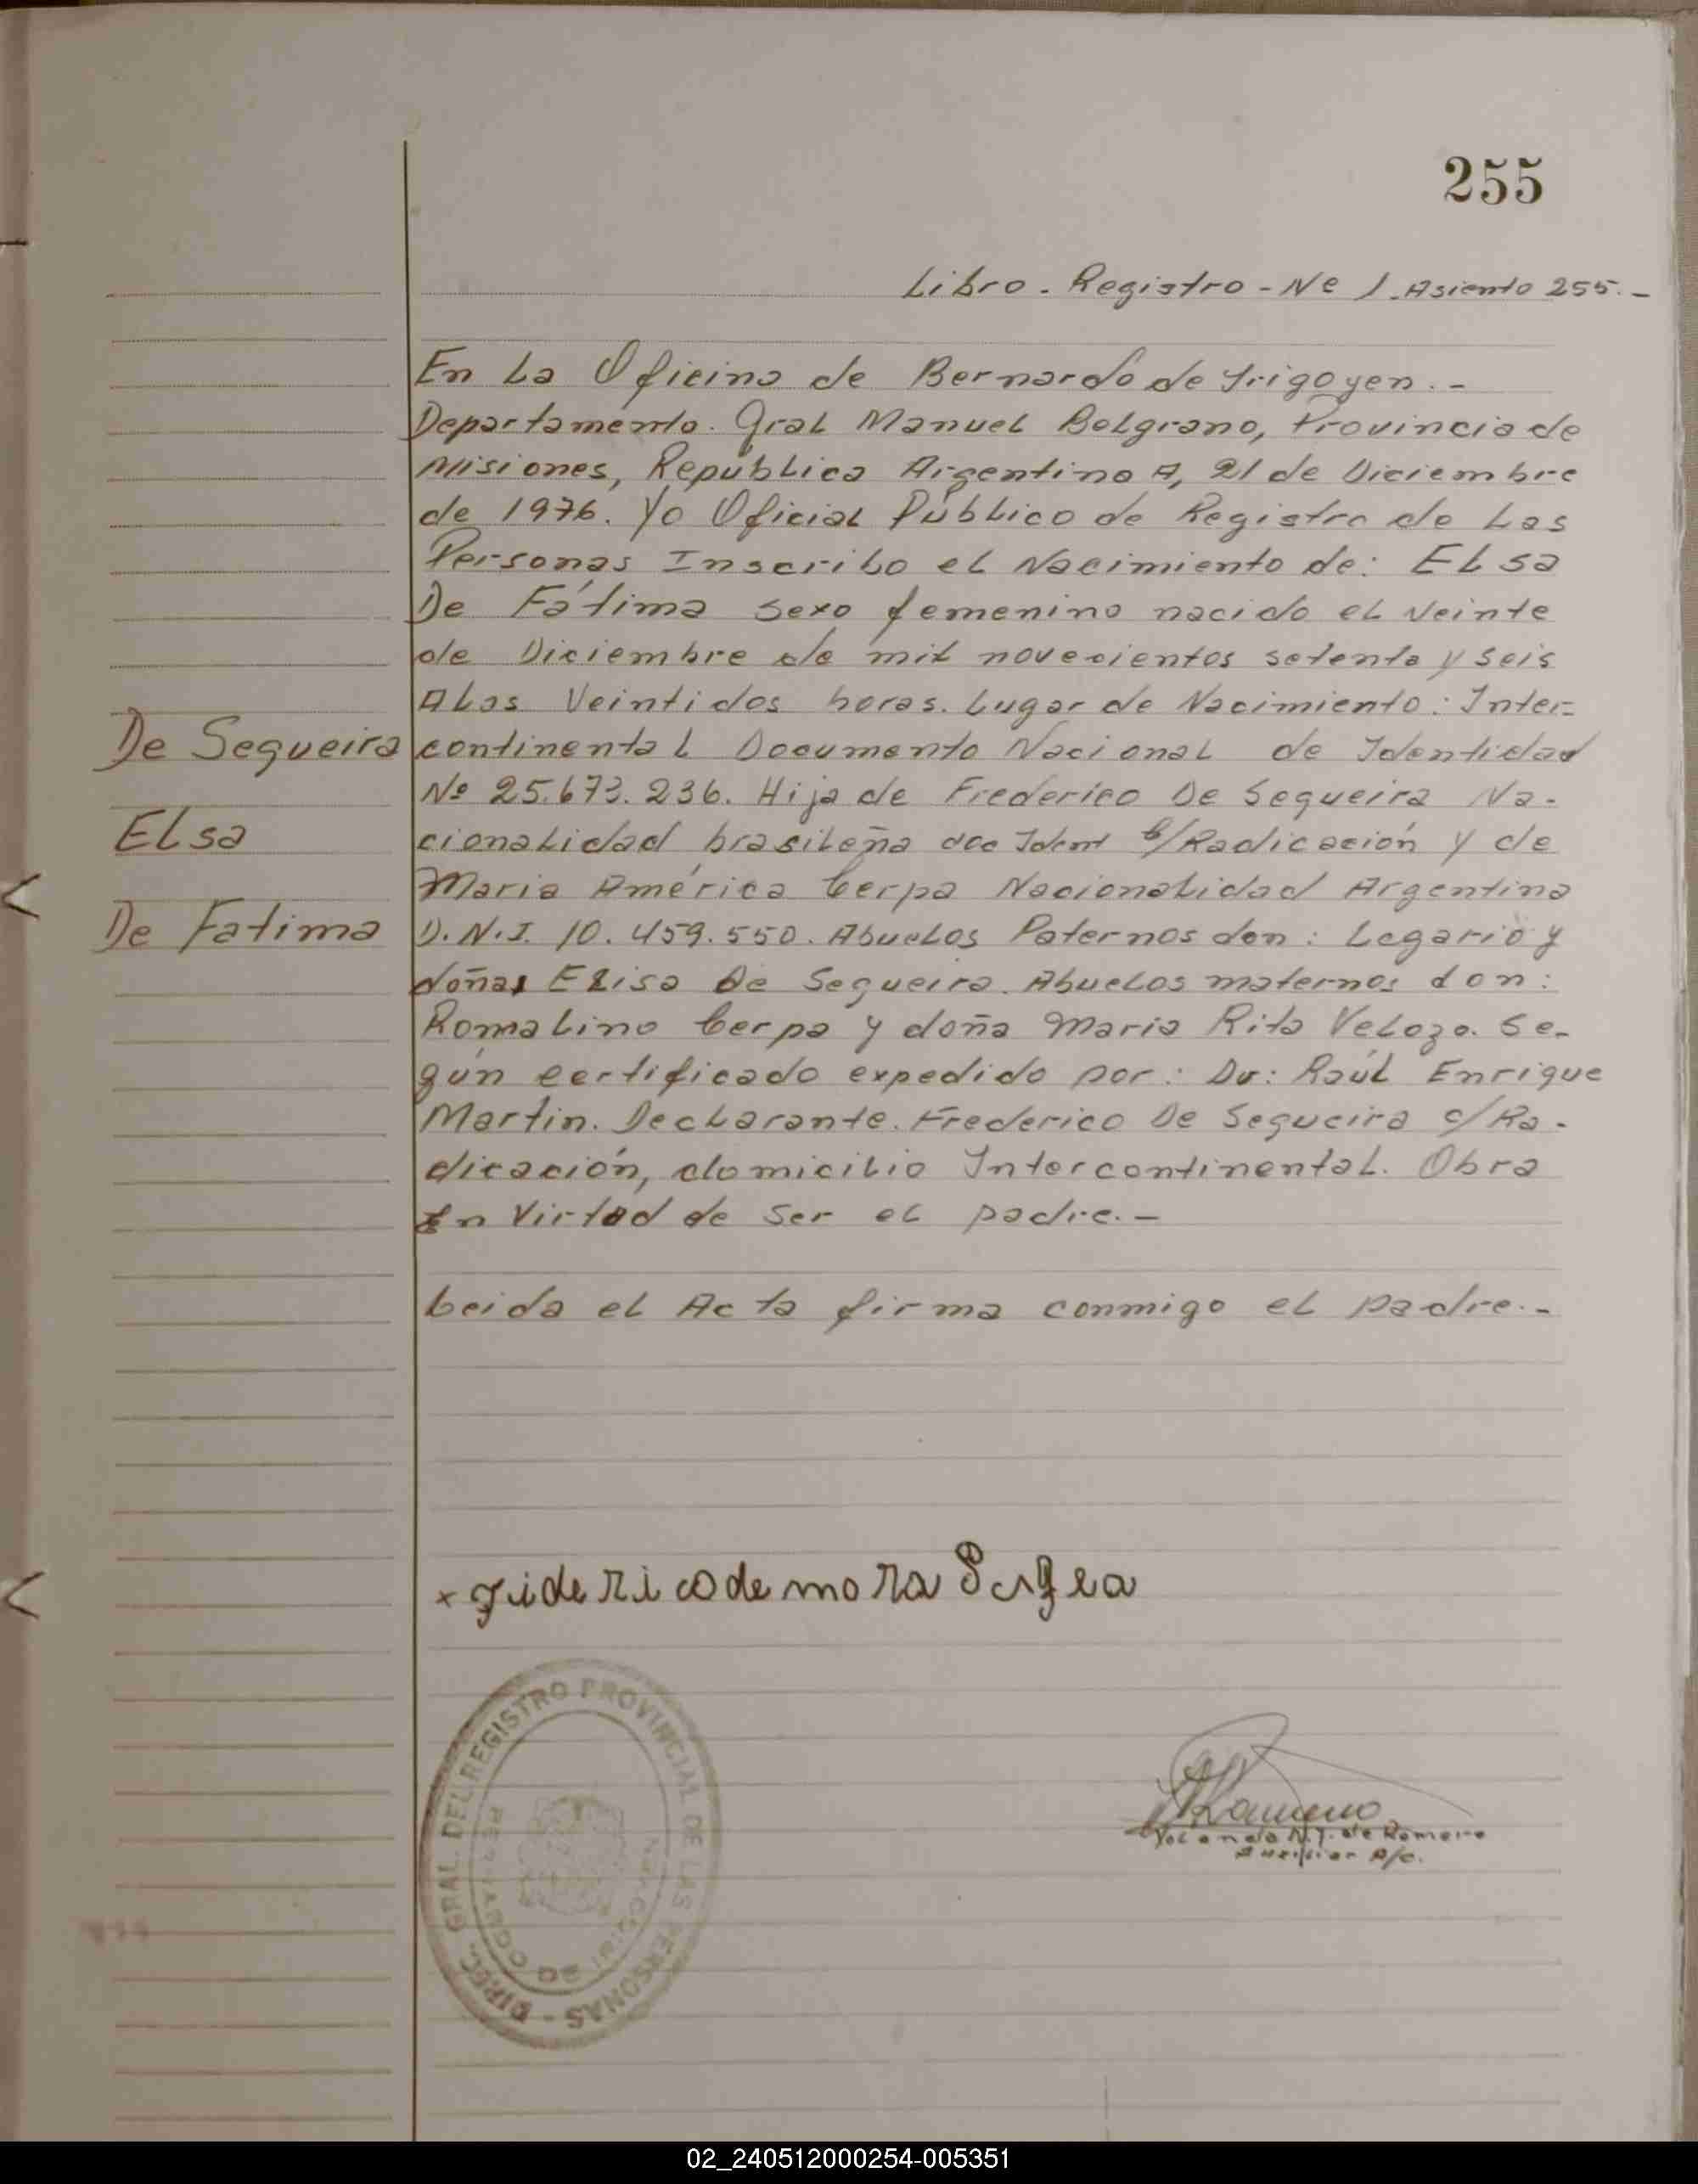 255
Libro - Registro - Nº 1. Asiento 255.-
En La Oficina de Bernardo de Irigoyen.-
Departamento. Gral Manuel Belgrano, Provincia de
Misiones, República Argentina A, 21 de Diciembre
de 1976. Yo Oficial Público de Registro de Las
Personas Inscribo el Nacimiento de: ELsa
De Fátima sexo femenino nacido el Veinte
de Diciembre de mil novecientos setenta y seis
A Las Veintidos horas. Lugar de Nacimiento: Inter=
continental Documento Nacional de Identidad
Nº 25.673.236. Hija de Frederico De Sequeira Na-
cionalidad brasileña doc Ident c/Radicación y de
Maria América Cerpa Nacionalidad Argentina
D.N.I. 10.459.550. Abuelos Paternos don: Legario y
doña Elisa De Sequeira. Abuelos maternos don:
Romalino Cerpa y doña Maria Rita Velozo. Se-
gún certificado expedido por: Dr: Raúl Enrique
Martin. Declarante. Frederico De Sequeira c/Ra-
dicación, domicilio Intercontinental. Obra
En Virtud de Ser el padre.-
Leida el Acta firma conmigo el padre.-
De Sequeira
ELsa
De Fatima
x fide rico de mora
DIREC. GRAL. DEL REGISTRO PROVINCIAL DE LAS PERSONAS -
Yolanda N.J. de Romero
Auxiliar A/c.
02_240512000254-005351